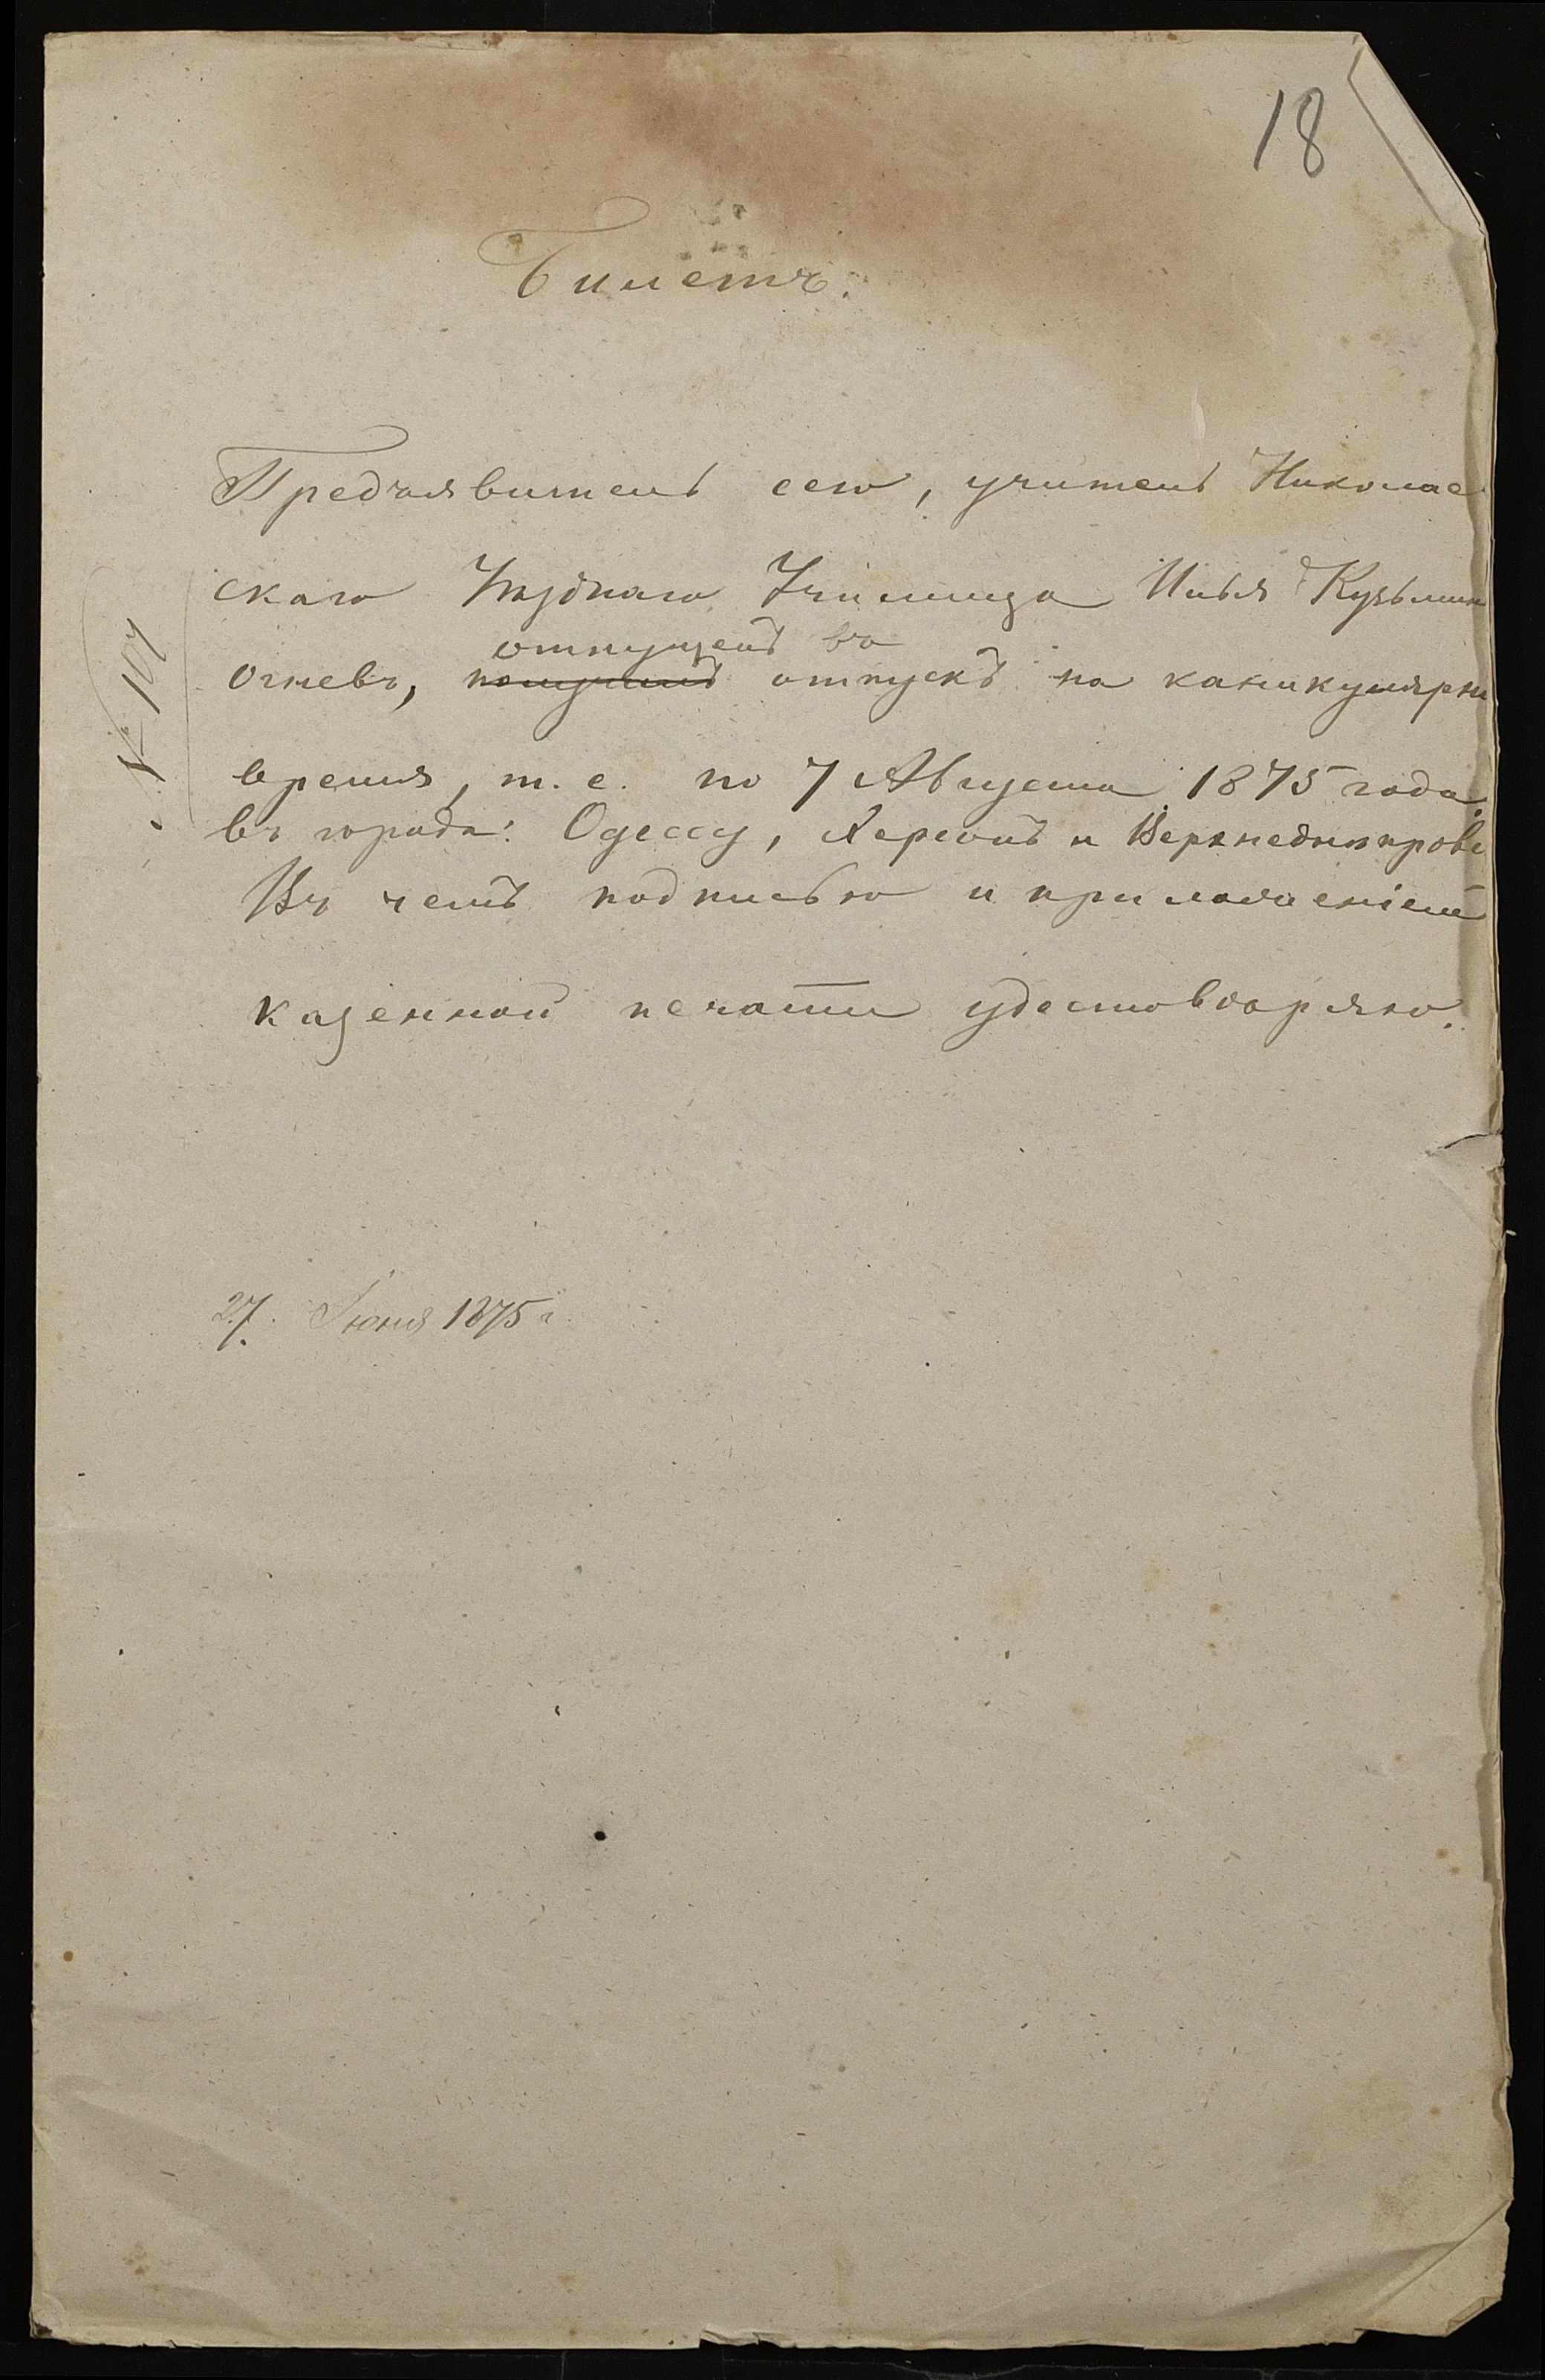 18
Билетъ.
Предъявитель сего, учитель Николае
скаго Уѣзднаго Училища Илья Кузьмин
отпущенъ въ
Огневъ, отпускъ на каникулярн
№ 107
время, т. е. по 7 Августа 1875 года.
въ города: Одессу, Херсонъ и Верхнеднѣпровс
Въ чемъ подписью и приложеніемъ
казенной печати удостовѣряю.
27. Іюня 1875 г.